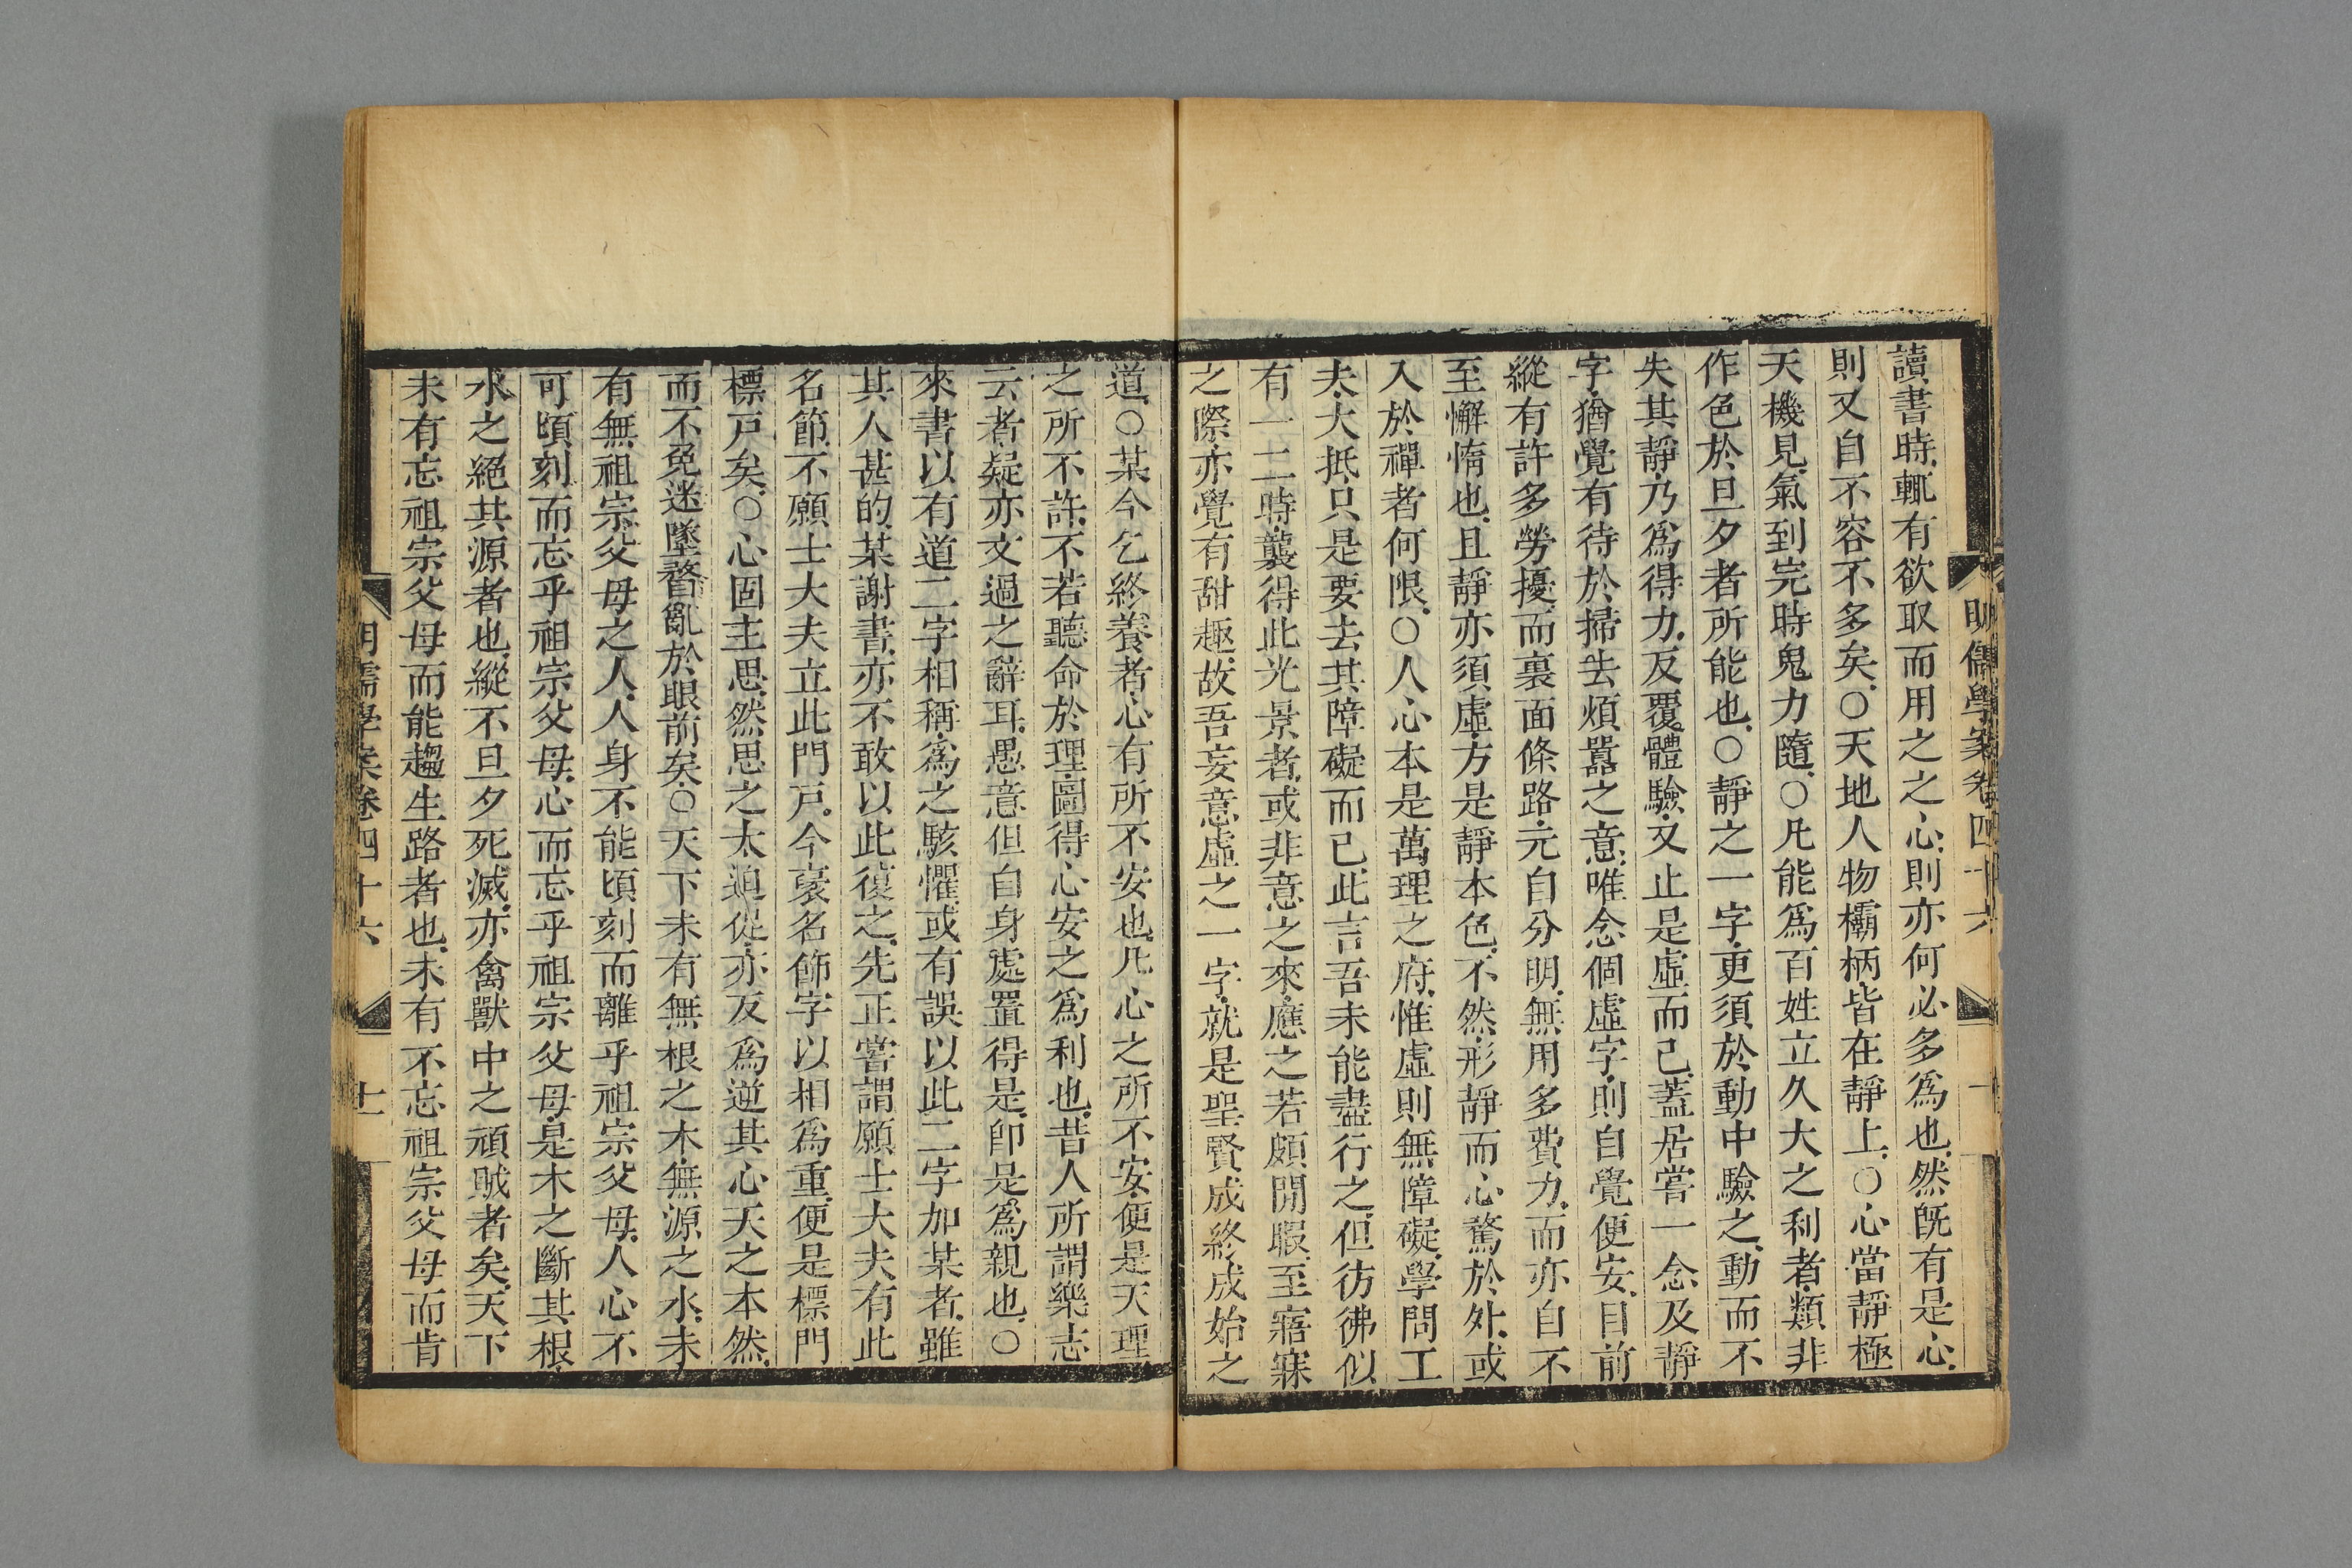 明儒學案卷四十六
讀書時、輒有欲取而用之之心、則亦何必多爲也、然旣有是心、
則又自不容不多矣、○天地人物欛柄、皆在靜上、○心當靜極
天機見、氣到完時鬼力隨、○凡能爲百姓立久大之利者、類非
作色於旦夕者所能也、○靜之一字、更須於動中驗之、動而不
失其靜、乃爲得力、反覆體驗、又止是虛而已、蓋居嘗一念及靜
字、猶覺有待於掃去煩囂之意、唯念個虛字、則自覺便安、目前
縱有許多勞擾、而裏面條路元自分明、無用多費力、而亦自不
至懈惰也、且靜亦須虛、方是靜本色、不然、形靜而心騖於外、或
入於禪者何限、○人心本是萬理之府、惟虛則無障礙、學問工
夫、大抵只是要去其障礙而已、此言吾未能盡行之、但彷彿似
有一二時、襲得此光景者、或非意之來、應之若頗閒暇、至寤寐
之際、亦覺有甜趣、故吾妄意虛之一字、就是聖賢成終成始之
道、○某今乞終養者、心有所不安也、凡心之所不安、便是天理
之所不許、不若聽命於理、圖得心安之爲利也、昔人所謂樂志
云者、疑亦文過之辭耳、愚意但自身處置得是、卽是爲親也、○
來書以有道二字相稱、爲之駭懼、或有誤以此二字加某者、雖
其人甚的、某謝書、亦不敢以此復之、先正嘗謂願士大夫有此
名節、不願士大夫立此門戶、今褒名節字以相爲重、便是標門
標戶矣、○心固主思、然思之太迫促、亦反爲逆其心天之本然、
而不免迷墜瞀亂於眼前矣、○天下未有無根之木、無源之水、未
有無祖宗父母之人、人身不能頃刻而離乎祖宗父母、人心不
可頃刻而忘乎祖宗父母、心而忘乎祖宗父母、是木之斷其根、
水之絕其源者也、縱不旦夕死滅、亦禽獸中之頑賊者矣、天下
未有忘祖宗父母而能趨生路者也、未有不忘祖宗父母而肯
明儒學案卷四十六
十一